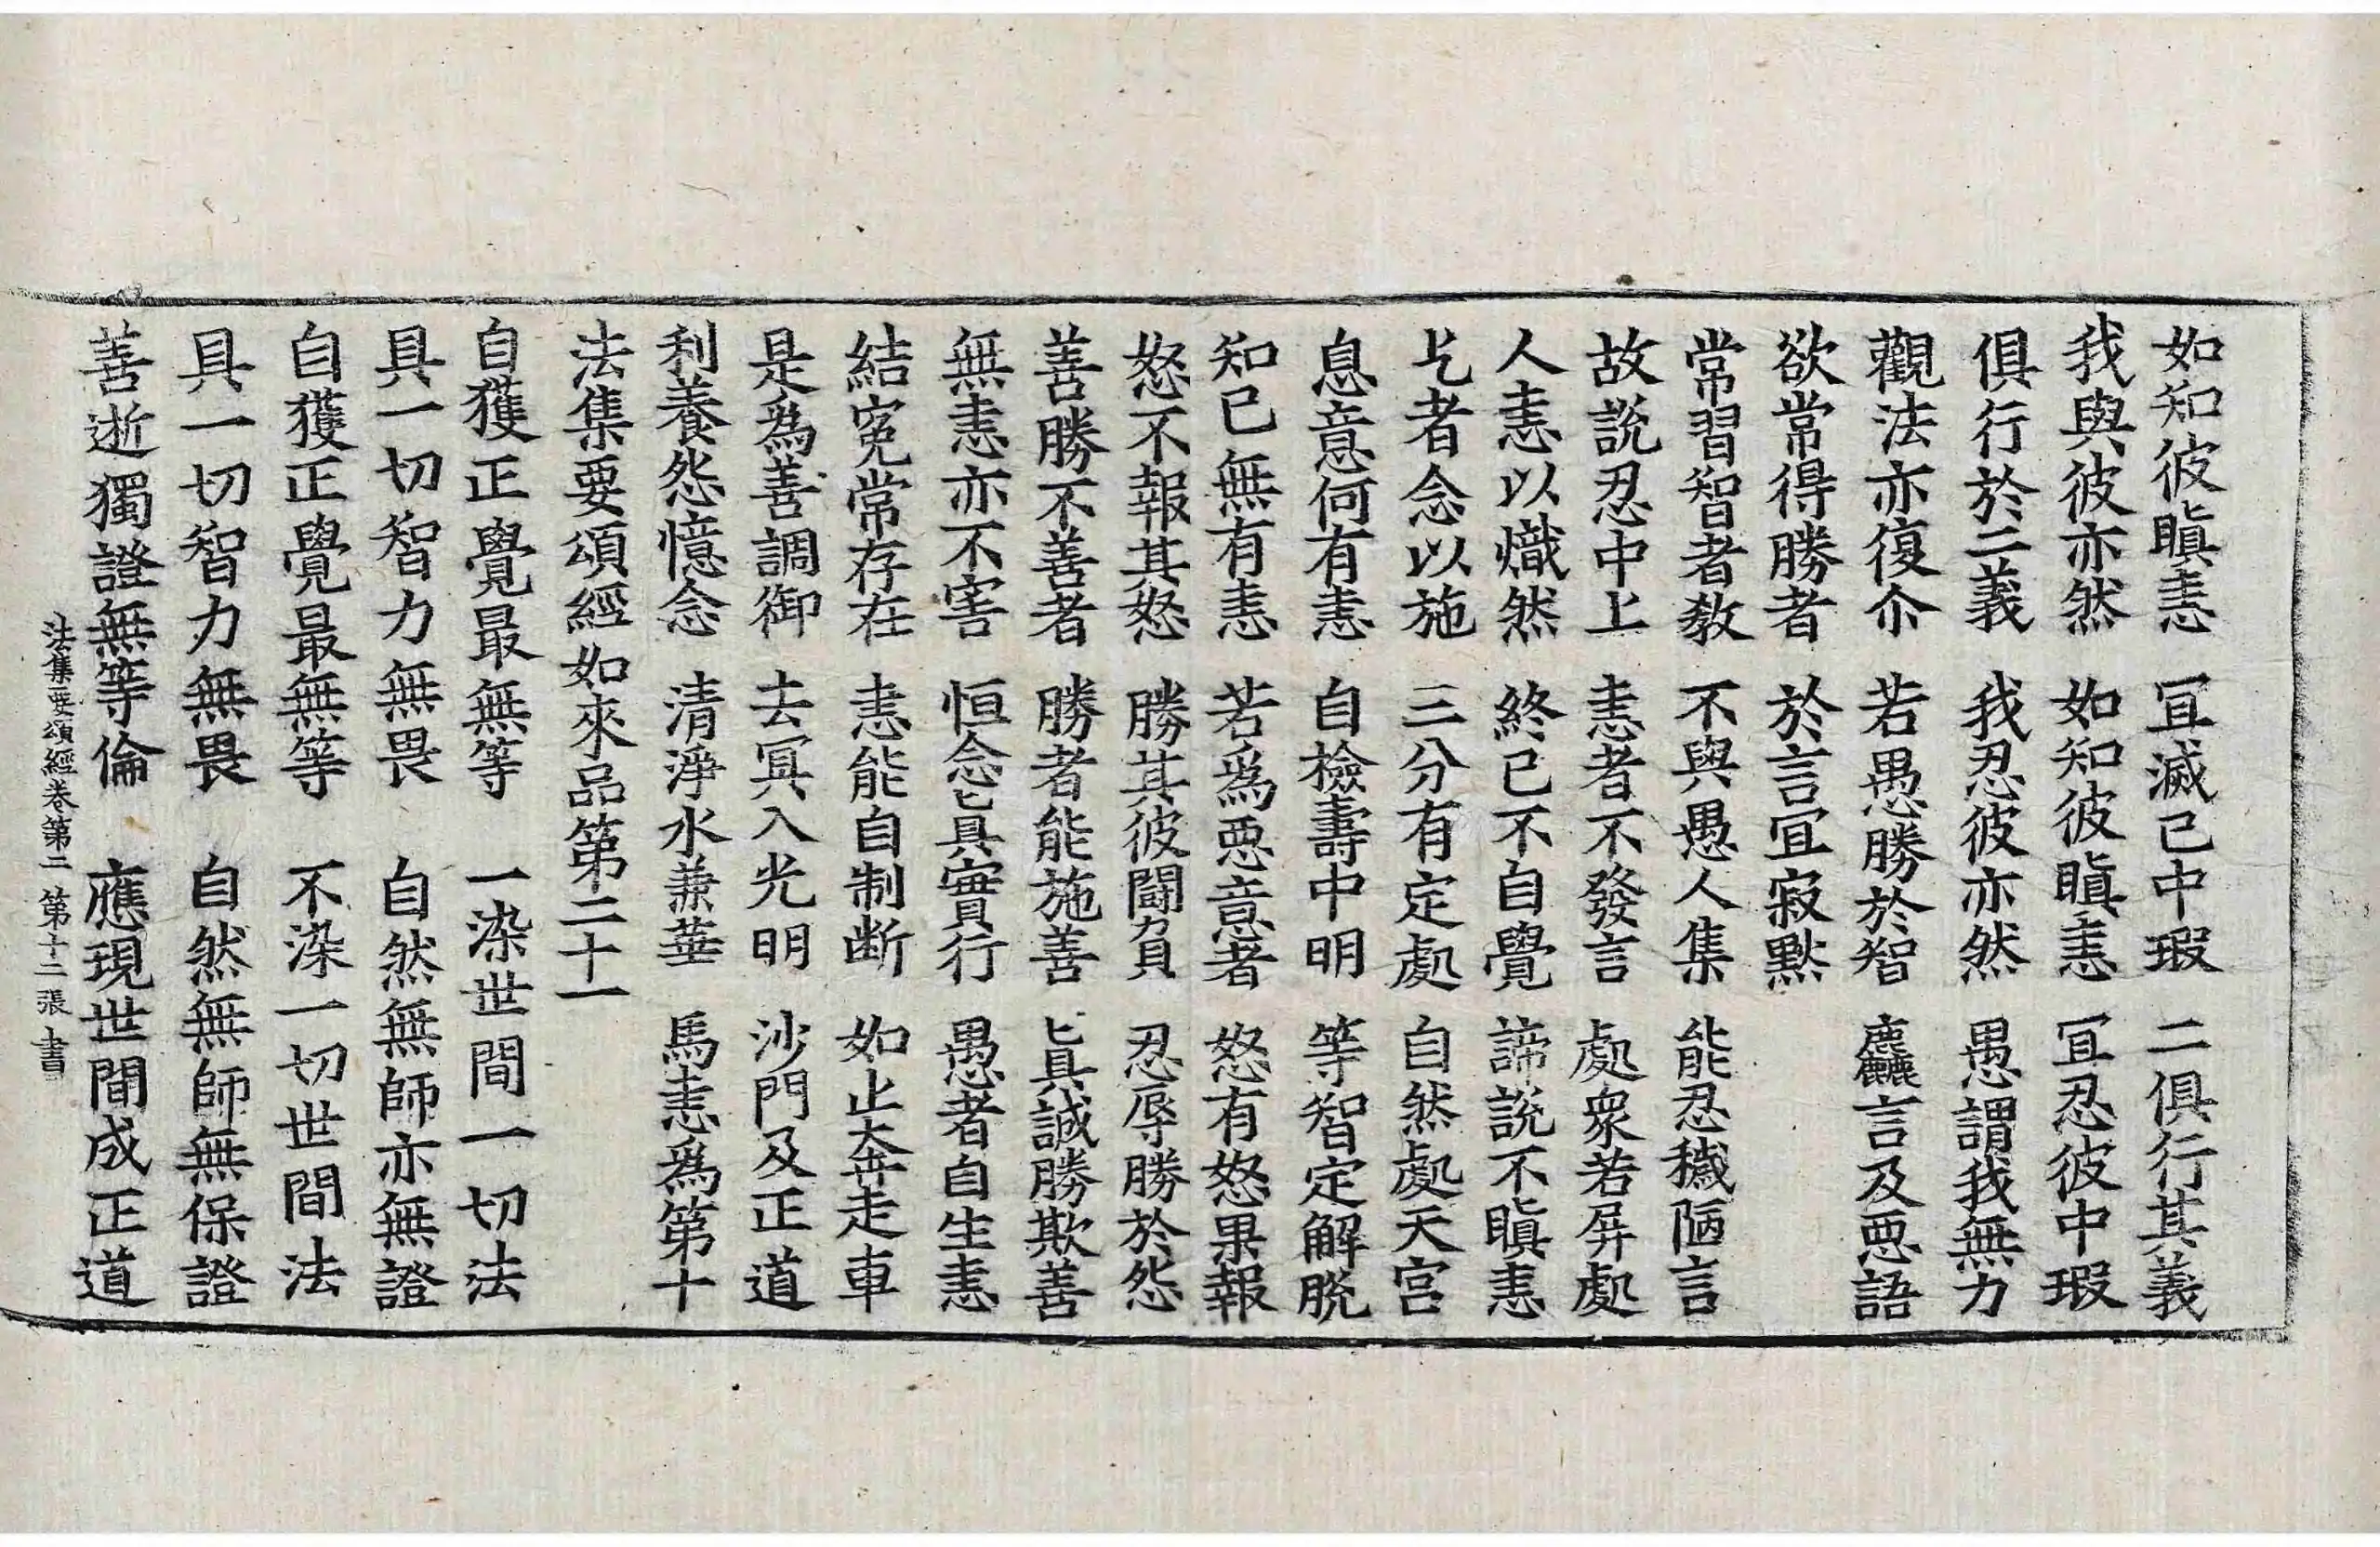 如知彼瞋恚　宜滅己中瑕　二俱行其義
我與彼亦然　如知彼瞋恚　宜忍彼中瑕
俱行於二義　我忍彼亦然　愚謂我無力
觀法亦復尒　若愚勝於智　麤言及悪語
欲常得勝者　於言宜寂黙
常習智者教　不與愚人集　能忍穢陋言
故說忍中上　恚者不發言　處衆若屏處
人恚以熾然　終已不自覺　諦說不瞋恚
乞者念以施　三分有定處　自然處天宮
息意何有恚　自檢壽中明　等智定解脫
知已無有恚　若爲悪意者　怒有怒果報
怒不報其怒　勝其彼鬪負　忍辱勝於怨
善勝不善者　勝者能施善　眞誠勝欺善
無恚亦不害　恒念眞實行　愚者自生恚
結寃常存在　恚能自制断　如止奔走車
是爲善調御　去冥入光明　沙門及正道
利養怨憶念　清淨水兼華　馬恚爲第十
法集要頌經如來品第二十一
自獲正覺最無等　一染世間一切法
具一切智力無畏　自然無師亦無證
自獲正覺最無等　不染一切世間法
具一切智力無畏　自然無師無保證
善逝獨證無等倫　應現世間成正道
法集要頌經卷第二　第十二張　書